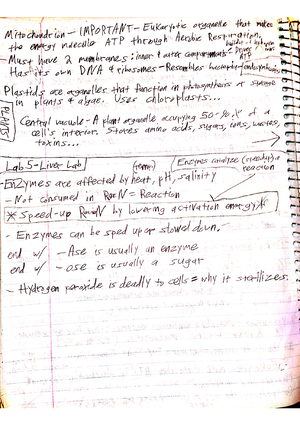 Mitochondrion - IMPORTANT - Eukaryotic organelle that makes
the energy molecule ATP through Aerobic Respiration.
- Must have 2 membranes: inner & outer compartments =
Has its own DNA & ribosomes - Resembles bacteria
Plastids are organelles that function in photosynthesis or storage
in plants & algae. Uses chloroplasts...
PLANTS!
Central vacuole - A plant organelle occupying 50-% of a
cell's interior. Stores amino acids, sugars, ions, wastes,
toxins...
Lab 5 - Liver Lab
Enzymes catalize (speed up) a
reaction
- Enzymes are affected by heat, pH, salinity
(temp)
- Not consumed in RxN = Reaction
* Speed-up RxN by lowering activation energy *
- Enzymes can be sped up or slowed down.
end w/ - Ase is usually an enzyme
end w/ - ose is usually a sugar
- Hydrogen peroxide is deadly to cells = why it sterilizes.